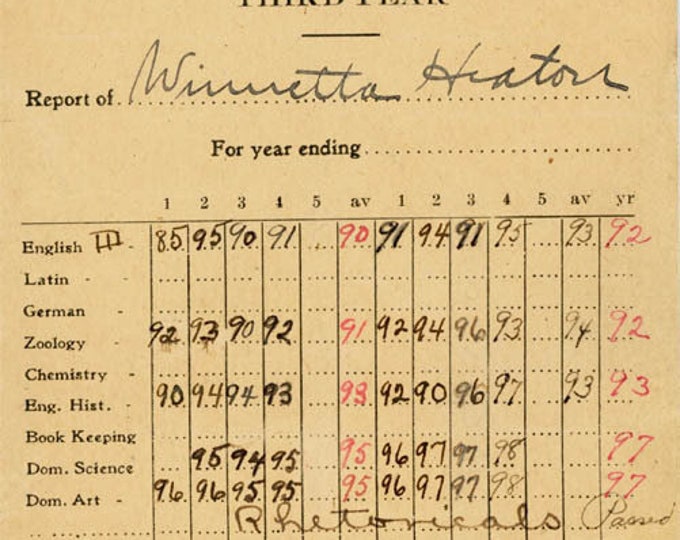 THIRD YEAR
Report of Winnetta Heaton
For year ending
1 2 3 4 5 av 1 2 3 4 5 av yr
English III - 85 95 90 91 90 91 94 91 95 93 92
Latin - -
German -
Zoology - 92 93 90 92 91 92 94 96 93 94 92
Chemistry -
Eng. Hist. - 90 94 94 93 93 92 90 96 97 93 93
Book Keeping
Dom. Science 95 94 95 95 96 97 97 98 97
Dom. Art - 96 96 95 95 95 96 97 97 98 97
Rhetoricals Passed